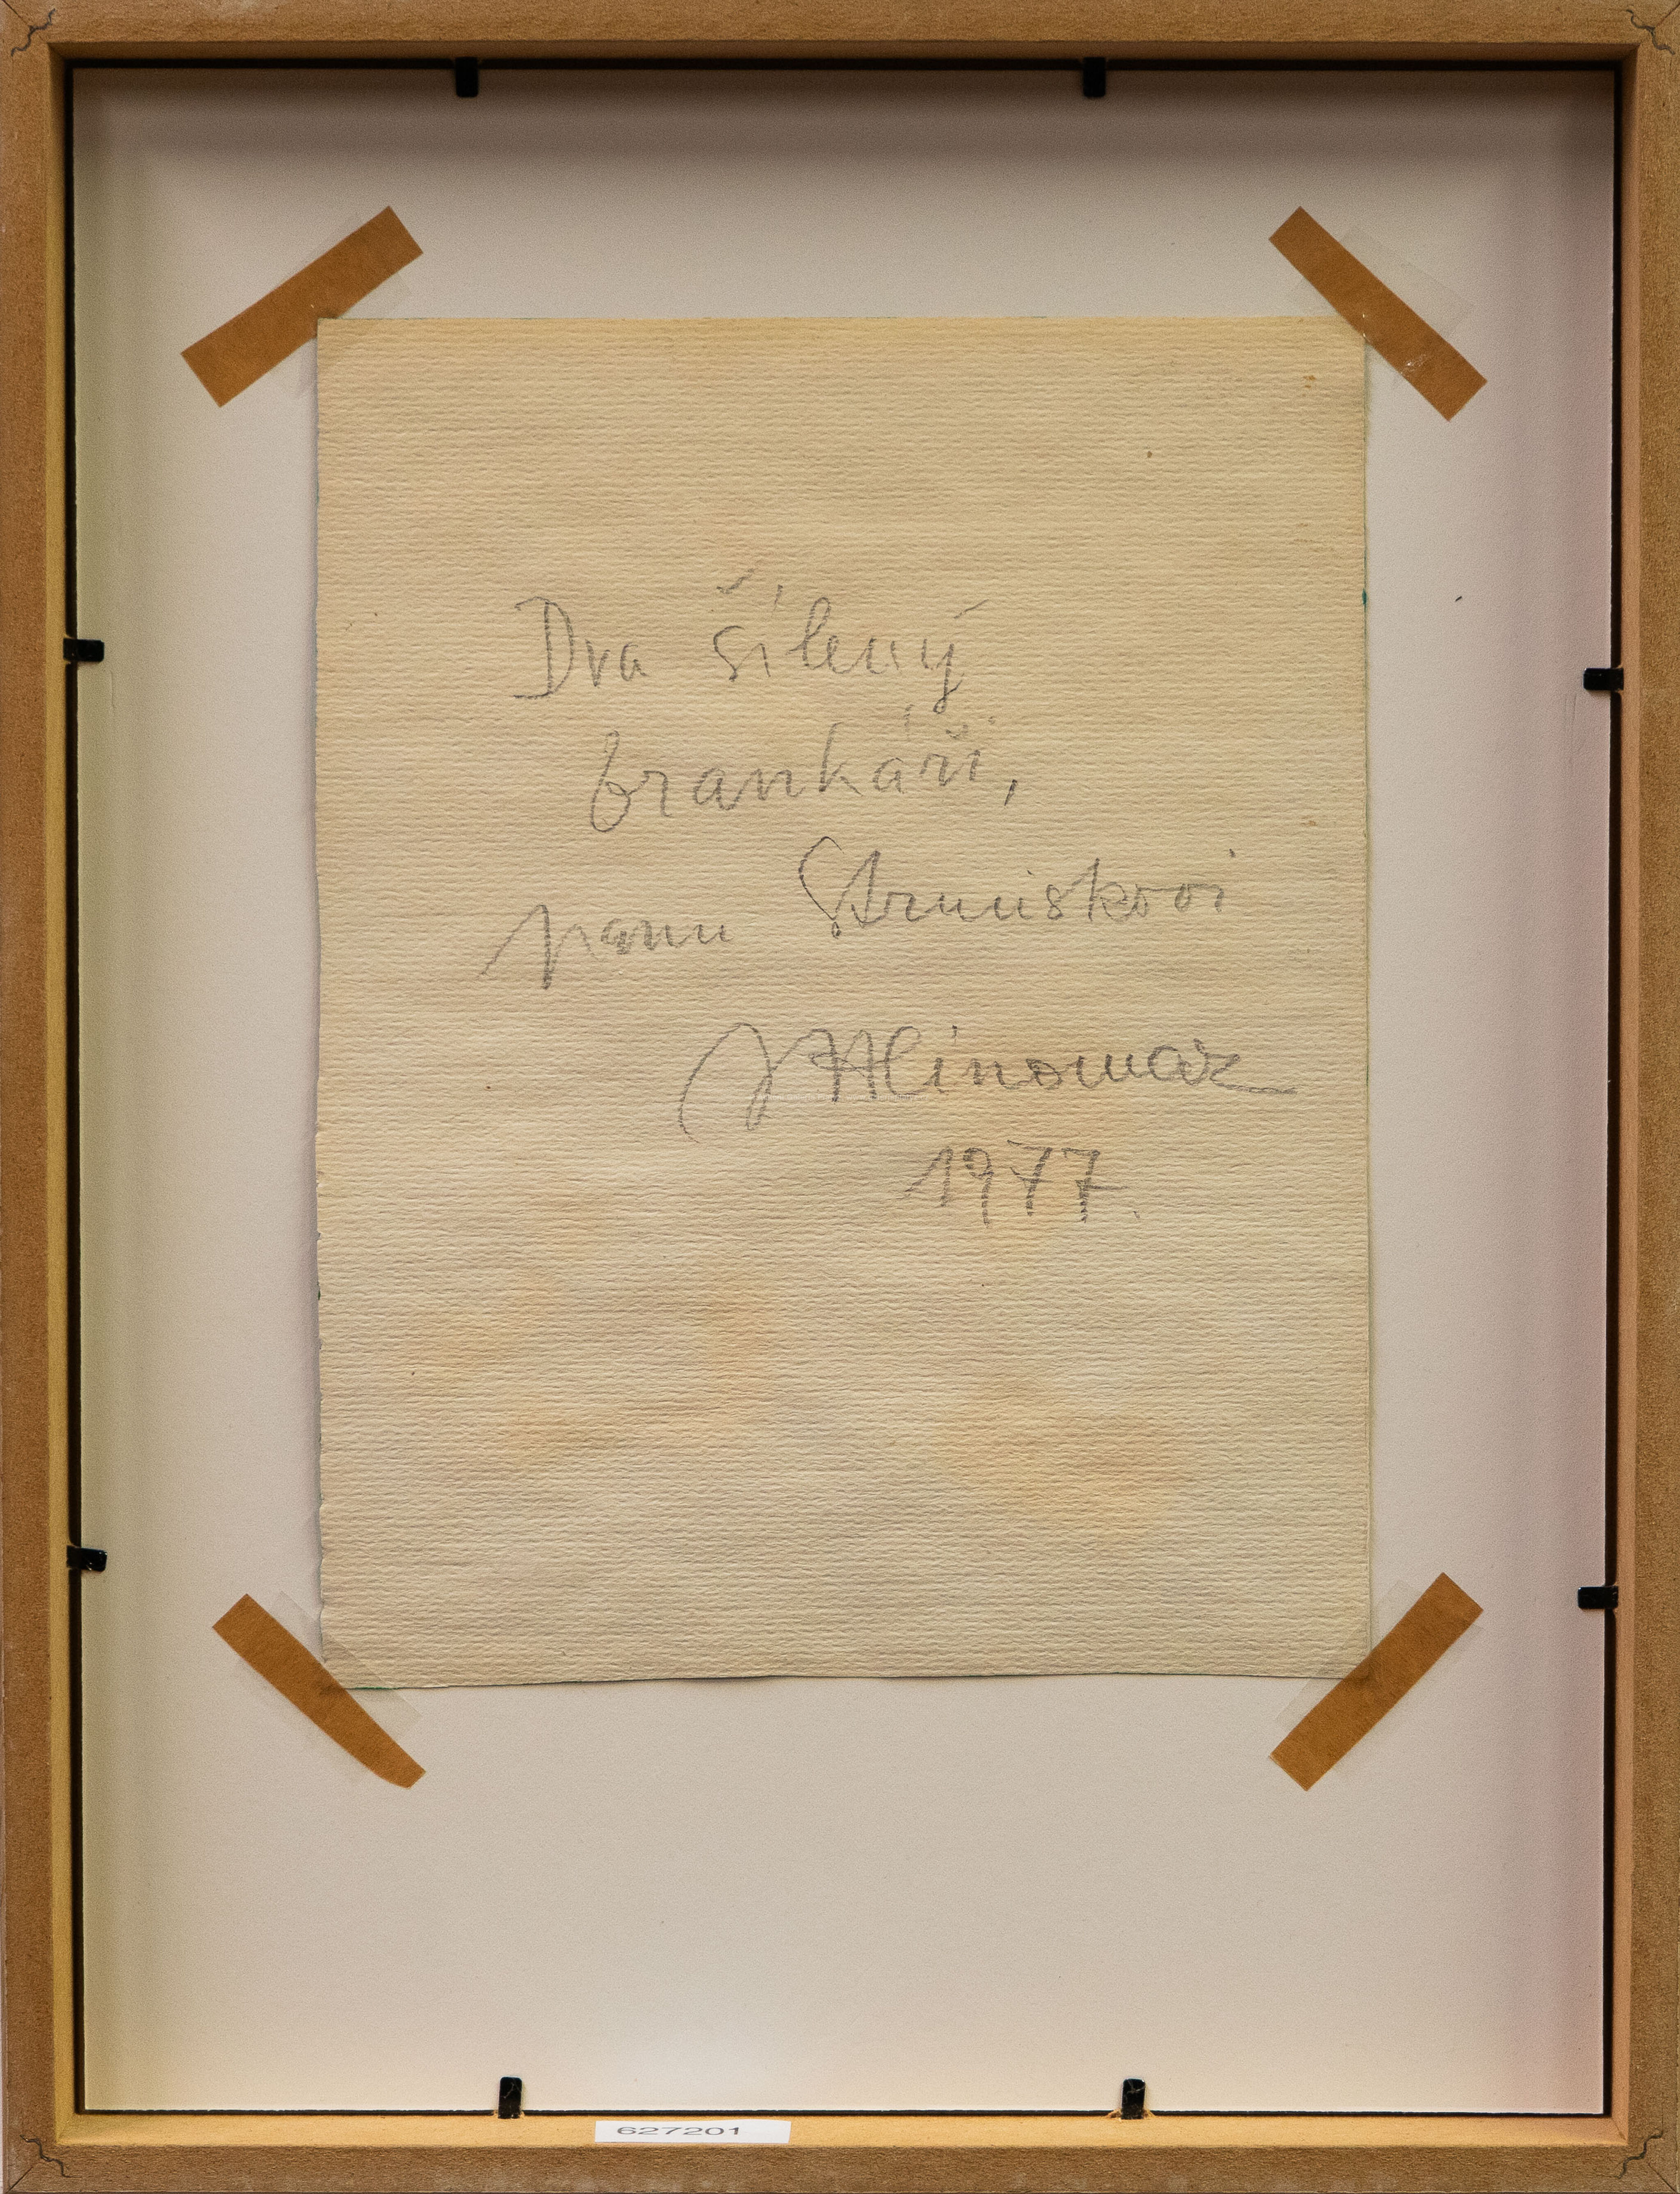 Dva šílený
brankáři,
panu Strniskovi
J Hlinomaz
1977.
627201